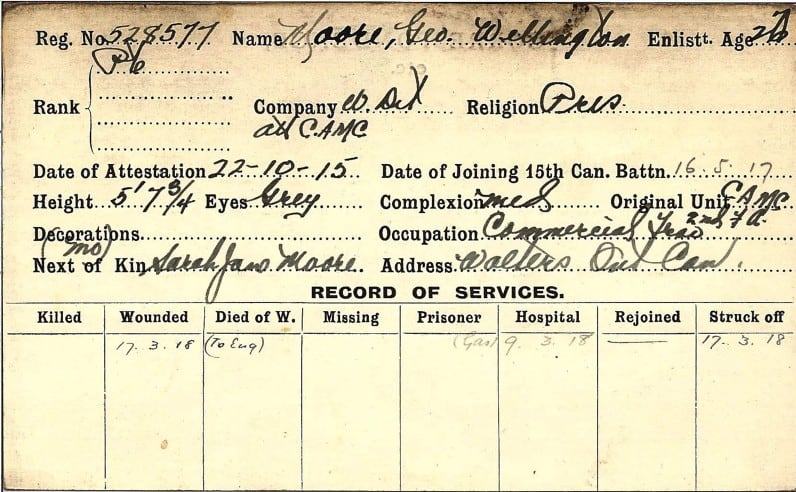 Reg. No. 528577 Name Moore, Geo. Wellington Enlistt. Age 26
Pte
Rank Company Religion Pres.
att C.A.M.C
Date of Attestation 22-10-15 Date of Joining 15th Can. Battn. 16.5.17
Height 5' 7 3/4 Eyes Grey Complexion med Original Unit C.A.M.C
2nd F A.
Decorations Occupation Commercial Trav
(mo)
Next of Kin Sarah Jane Moore. Address Walters Ont Can.
RECORD OF SERVICES.
Killed Wounded Died of W. Missing Prisoner Hospital Rejoined Struck off
17.3.18 (To Eng) (Gas) 9.3.18 —— 17.3.18